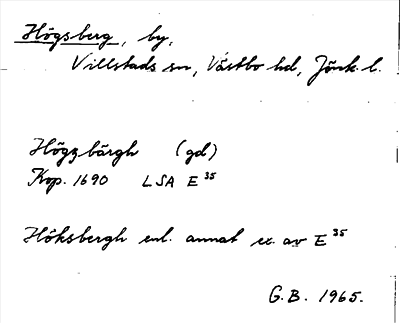 Högsberg, by,
Villstads sn, Västbo hd, Jönk. l.
Högzbärgh (gd)
Kop. 1690 LSA E 35
Höksbergh enl. annat ex. av E 35
G.B. 1965.